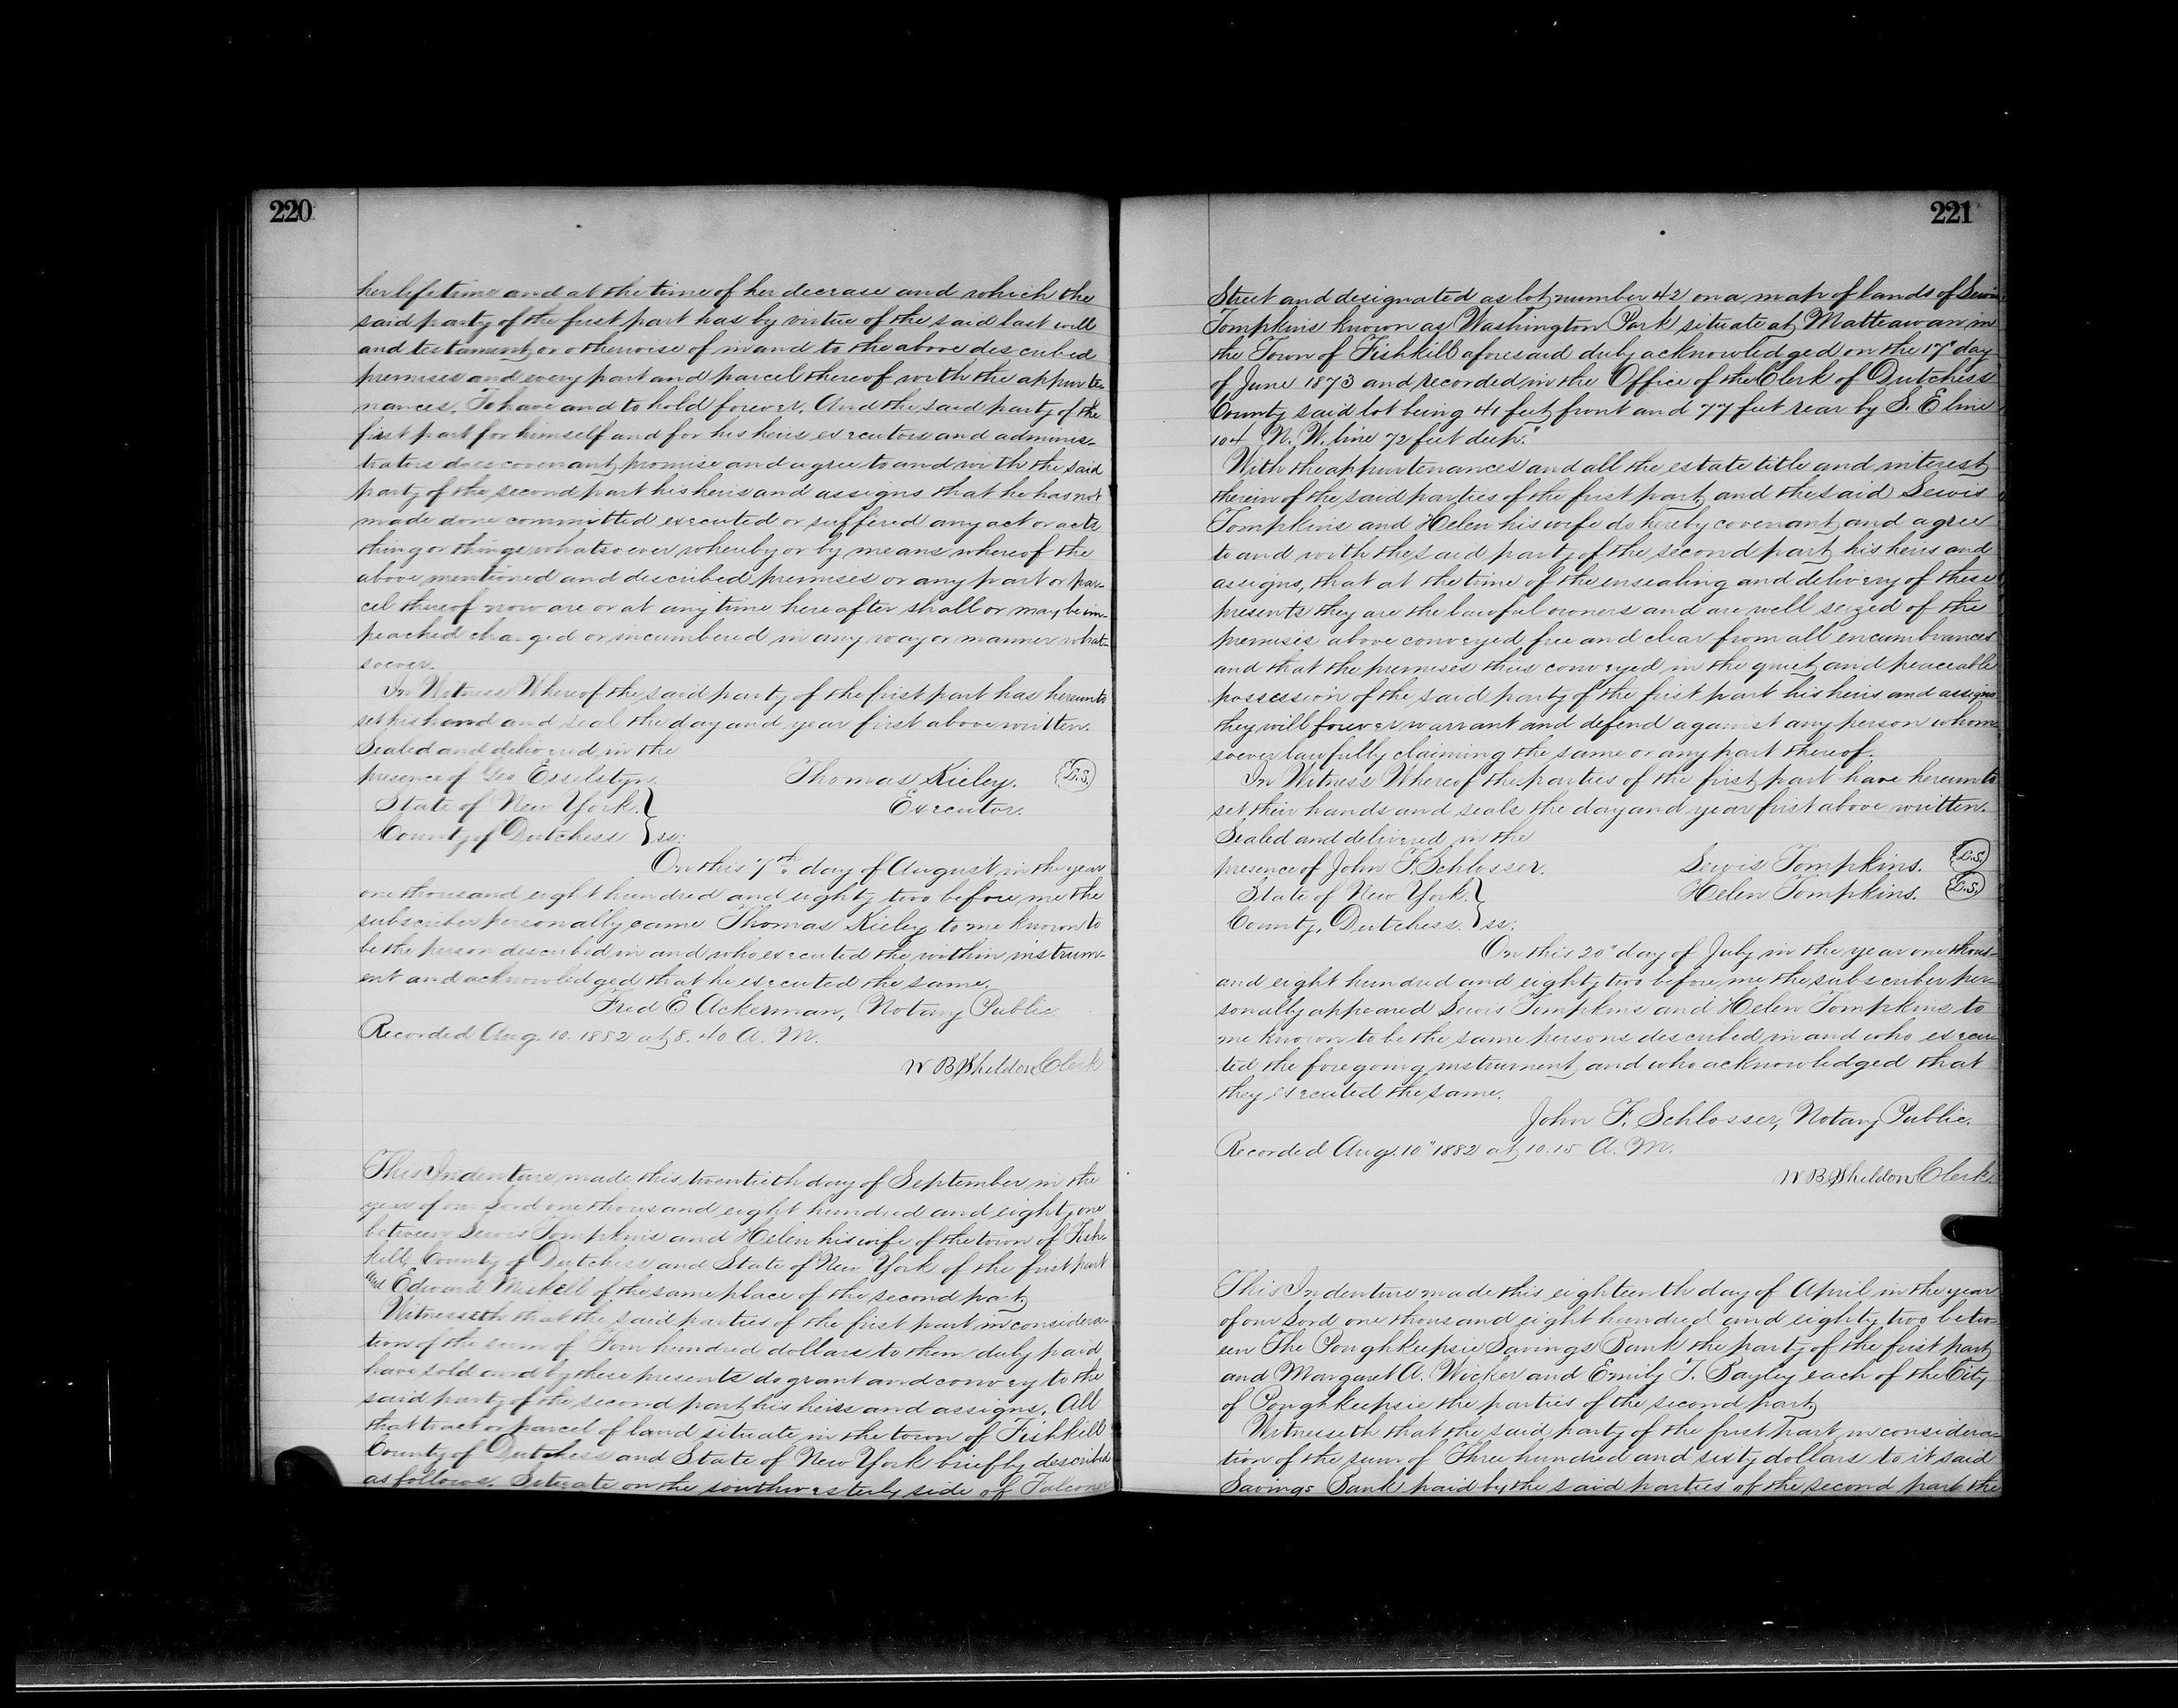 220
her lifetime and at the time of her decease and which the
said party of the first part has by virtue of the said last will
and testament or otherwise of in and to the above described
premises and every part and parcel thereof with the appurte
nances. To have and to hold forever. And the said party of the
first part for himself and for his heirs executors and adminis-
trators does covenant promise and agree to and with the said
party of the second part his heirs and assigns that he has not
made done committed executed or suffered any act or acts
thing or things whatsoever whereby or by means whereof the
above mentioned and described premises or any part or par-
cel thereof now are or at any time hereafter shall or may be im-
peached charged or incumbered in any way or manner what-
soever.
In Witness Whereof the said party of the first part has hereunto
set his hand and seal the day and year first above written.
Sealed and delivered in the
presence of Geo Esselstyn. Thomas Kieley. L.S.
State of New York. Executor.
County of Dutchess ss:
On this 7th. day of August in the year
one thousand eight hundred and eighty two before me the
subscriber personally came Thomas Kieley to me known to
be the person described in and who executed the within instrum-
ent and acknowledged that he executed the same.
Fred E Ackerman, Notary Public
Recorded Aug. 10. 1882 at 8.40 A. M.
W B Sheldon Clerk
This Indenture made this twentieth day of September in the
year of our Lord one thousand eight hundred and eighty one
between Lewis Tompkins and Helen his wife of the town of Fish-
kill, County of Dutchess and State of New York of the first part
and Edward Maskell of the same place of the second part.
Witnesseth that the said parties of the first part in considera-
tion of the sum of Four hundred dollars to them duly paid
have sold and by these presents do grant and convey to the
said party of the second part his heirs and assigns. All
that tract or parcel of land situate in the town of Fishkill
County of Dutchess and State of New York briefly described
as follows. Situate on the southwesterly side of Falconer
221
Street and designated as lot number 42 on a map of lands of Lewis
Tompkins known as Washington Park situate at Matteawan in
the Town of Fishkill aforesaid duly acknowledged on the 17" day
of June 1873 and recorded in the Office of the Clerk of Dutchess
County said lot being 41 feet front and 77 feet rear by S. E line
104 N. W. line 72 feet deep."
With the appurtenances and all the estate title and interest
therein of the said parties of the first part, and the said Lewis
Tompkins and Helen his wife do hereby covenant and agree
to and with the said party of the second part his heirs and
assigns, that at the time of the ensealing and delivery of these
presents they are the lawful owners and are well seized of the
premises above conveyed free and clear from all encumbrances
and that the premises thus conveyed in the quiet and peaceable
possession of the said party of the first part his heirs and assigns
they will forever warrant and defend against any person whom
soever lawfully claiming the same or any part thereof.
In Witness Whereof the parties of the first part have hereunto
set their hands and seals the day and year first above written.
Sealed and delivered in the
presence of John F. Schlosser. Lewis Tompkins. L.S.
State of New York. Helen Tompkins. L.S.
County, Dutchess. ss:
On this 20" day of July in the year one thous-
and eight hundred and eighty two before me the subscriber per-
sonally appeared Lewis Tompkins and Helen Tompkins to
me known to be the same persons described in and who execu
ted the foregoing instrument and who acknowledged that
they executed the same.
John F. Schlosser, Notary Public.
Recorded Aug. 10" 1882 at 10.15 A. M.
W B Sheldon Clerk
This Indenture made this eighteenth day of April in the year
of our Lord one thousand eight hundred and eighty two betw-
een The Poughkeepsie Savings Bank the party of the first part
and Margaret A. Wicker and Emily T. Bayley each of the City
of Poughkeepsie the parties of the second part
Witnesseth that the said party of the first part, in considera-
tion of the sum of Three hundred and sixty dollars to it said
Savings Bank paid by the said parties of the second part the